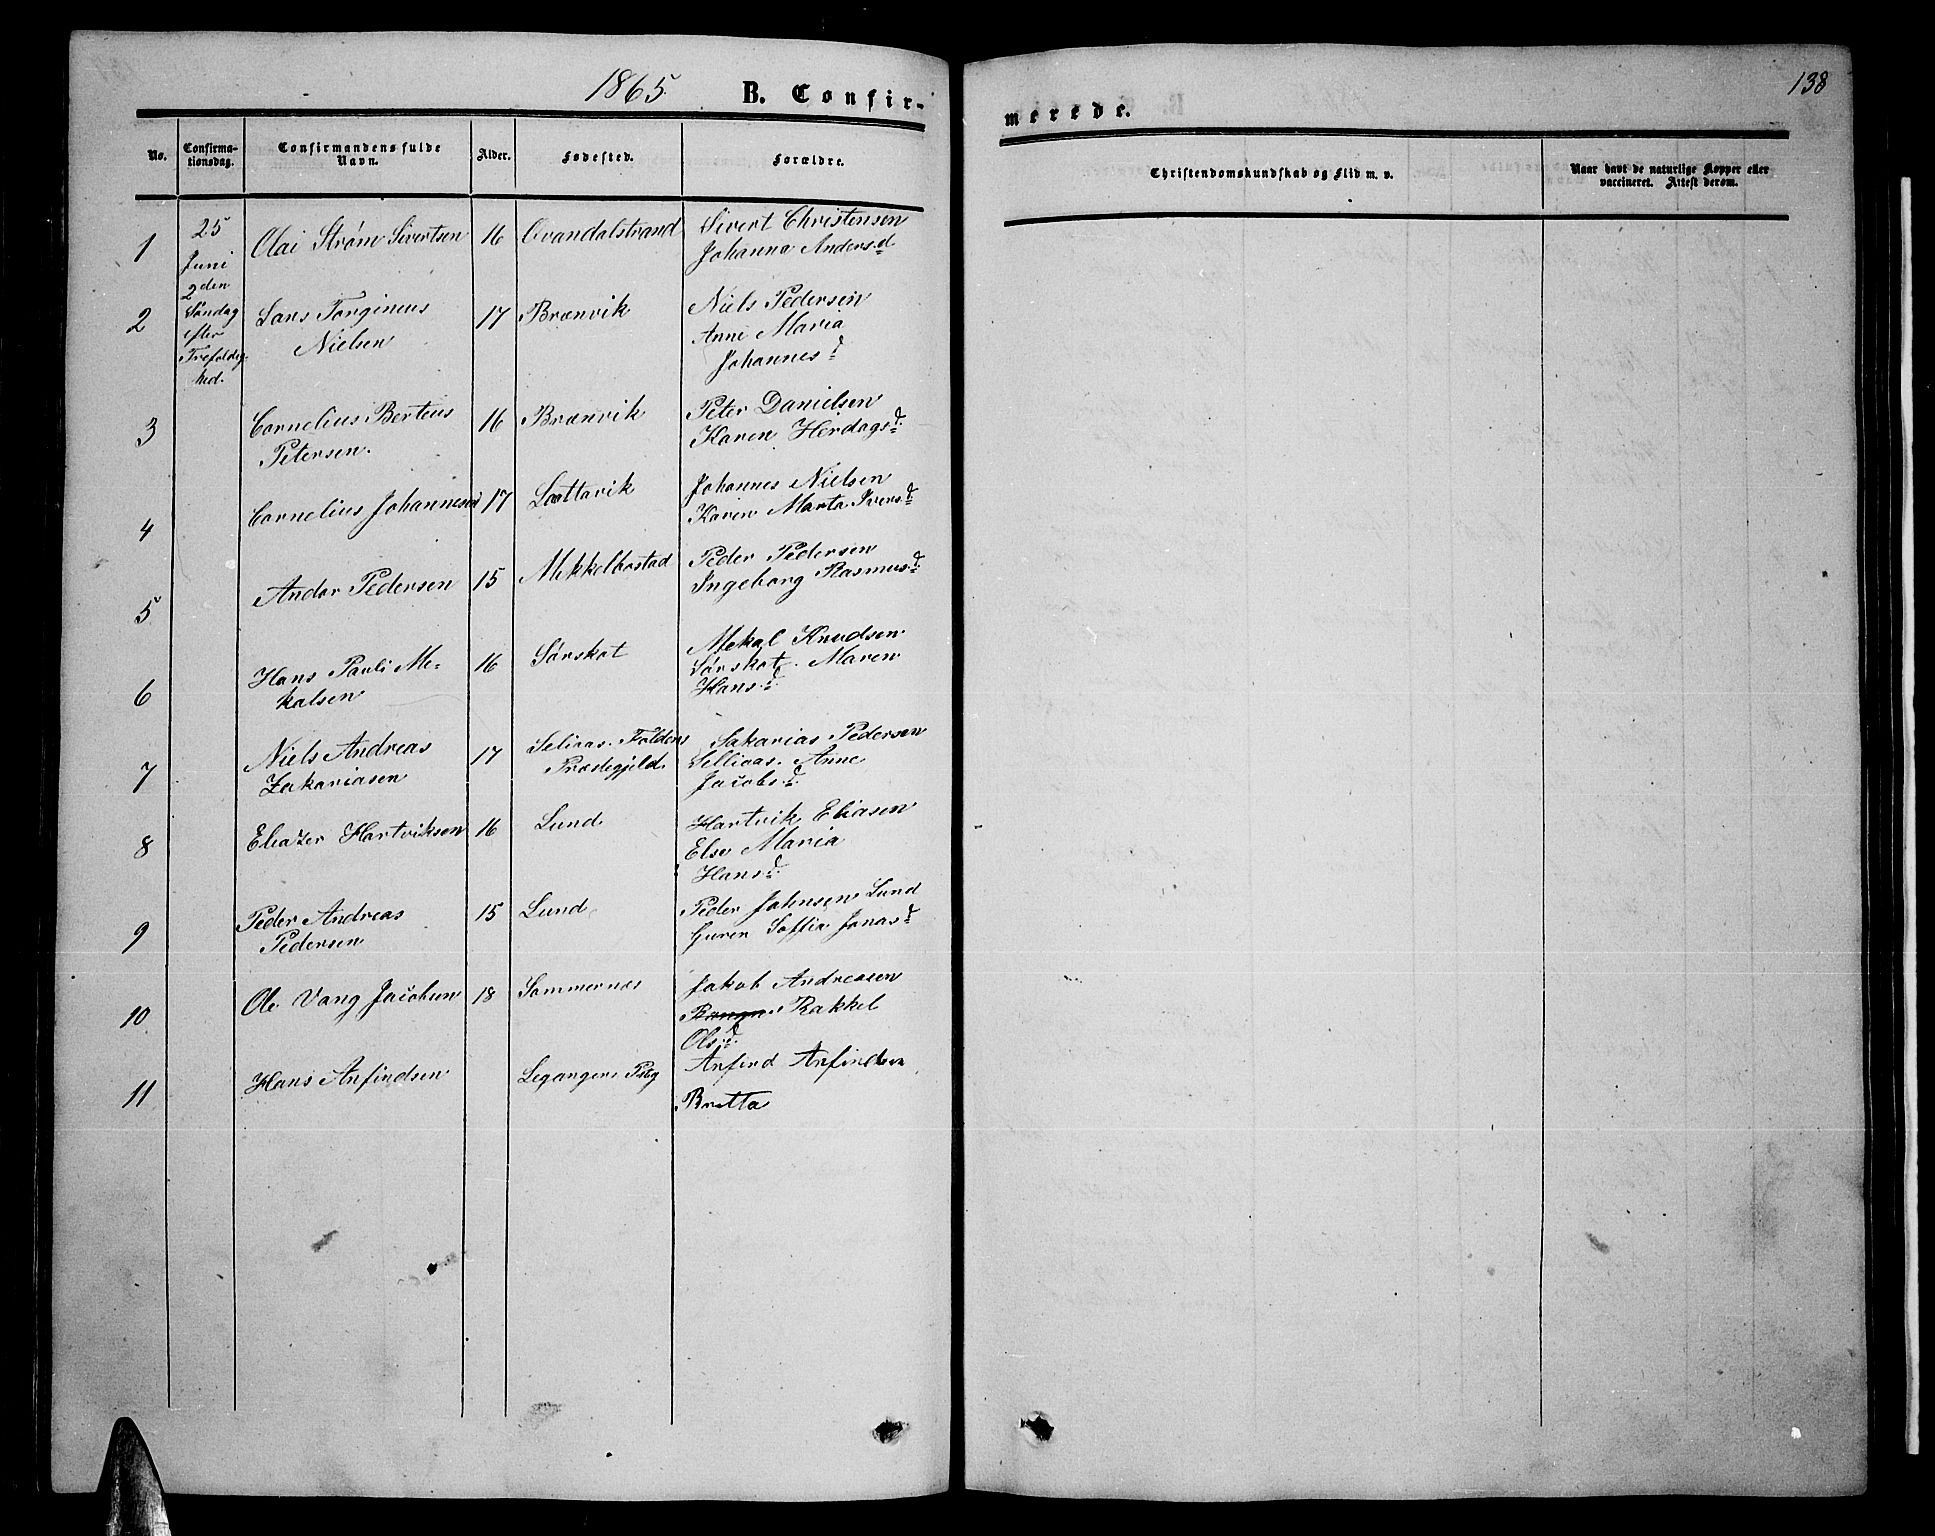 1865 B. Confir-
merede.
138
No. Confirma-tionsdag. Confirmandens fulde Navn. Alder. Fødested. Forældre.
Christendomskundskab og Flid m. v. Naar havt de naturlige Kopper eller vaccineret. Attest derom.
25
Juni
2den
Søndag
efter
Trefoldig-
hed.
1 Olai Strøm Sivertsen 16 Ovandalstrand Sivert Christensen
Johanna Andersd
2 Lars Torgineus 17 Brænvik Niels Pedersen
Nielsen Anne Maria
Johannesd
3 Cornelius Berteus 16 Brænvik Peter Danielsen
Petersen. Karen Herdagsd.
4 Cornelius Johannesen 17 Lættavik Johannes Nielsen
Karen Marta Iversd
5 Andor Pedersen 15 Mekkelbostad Peder Pedersen
Ingeborg Rasmusd.
6 Hans Pauli Me- 16 Sørskot Mekal Knudsen
kalsen Sørskot. Maren
Hansd.
7 Niels Andreas 17 Selivas. Foldens Sakarias Pedersen
Zakariasen Præstegjeld. Sellivas. Anne
Jacobsd.
8 Eliazer Hartviksen 16 Lund Hartvik Eliasen
Else Maria
Hansd.
9 Peder Andreas 15 Lund Peder Johnsen Lund
Pedersen Guren Soffia Jonasd
10 Ole Vang Jacobsen 18 Sommernes Jakob Andreasen
Rakkel
Olsd.
11 Hans Anfindsen Legangers Pstg Anfind Anfindsen
Britta